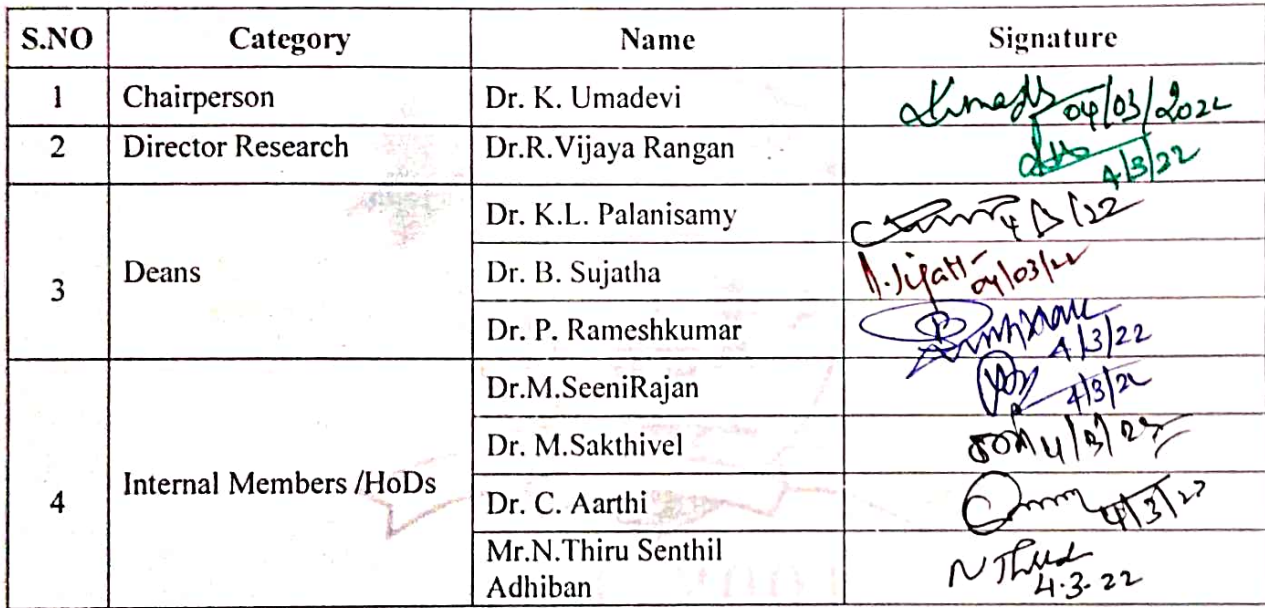 S.NO Category Name Signature
1 Chairperson Dr. K. Umadevi 04/03/2022
2 Director Research Dr.R.Vijaya Rangan 4/3/22
3 Deans Dr. K.L. Palanisamy 4/3/22
Dr. B. Sujatha 04/03/22
Dr. P. Rameshkumar 4/3/22
4 Internal Members /HoDs Dr.M.SeeniRajan 4/3/22
Dr. M.Sakthivel 4/3/22
Dr. C. Aarthi 4/3/22
Mr.N.Thiru Senthil
Adhiban 4.3.22